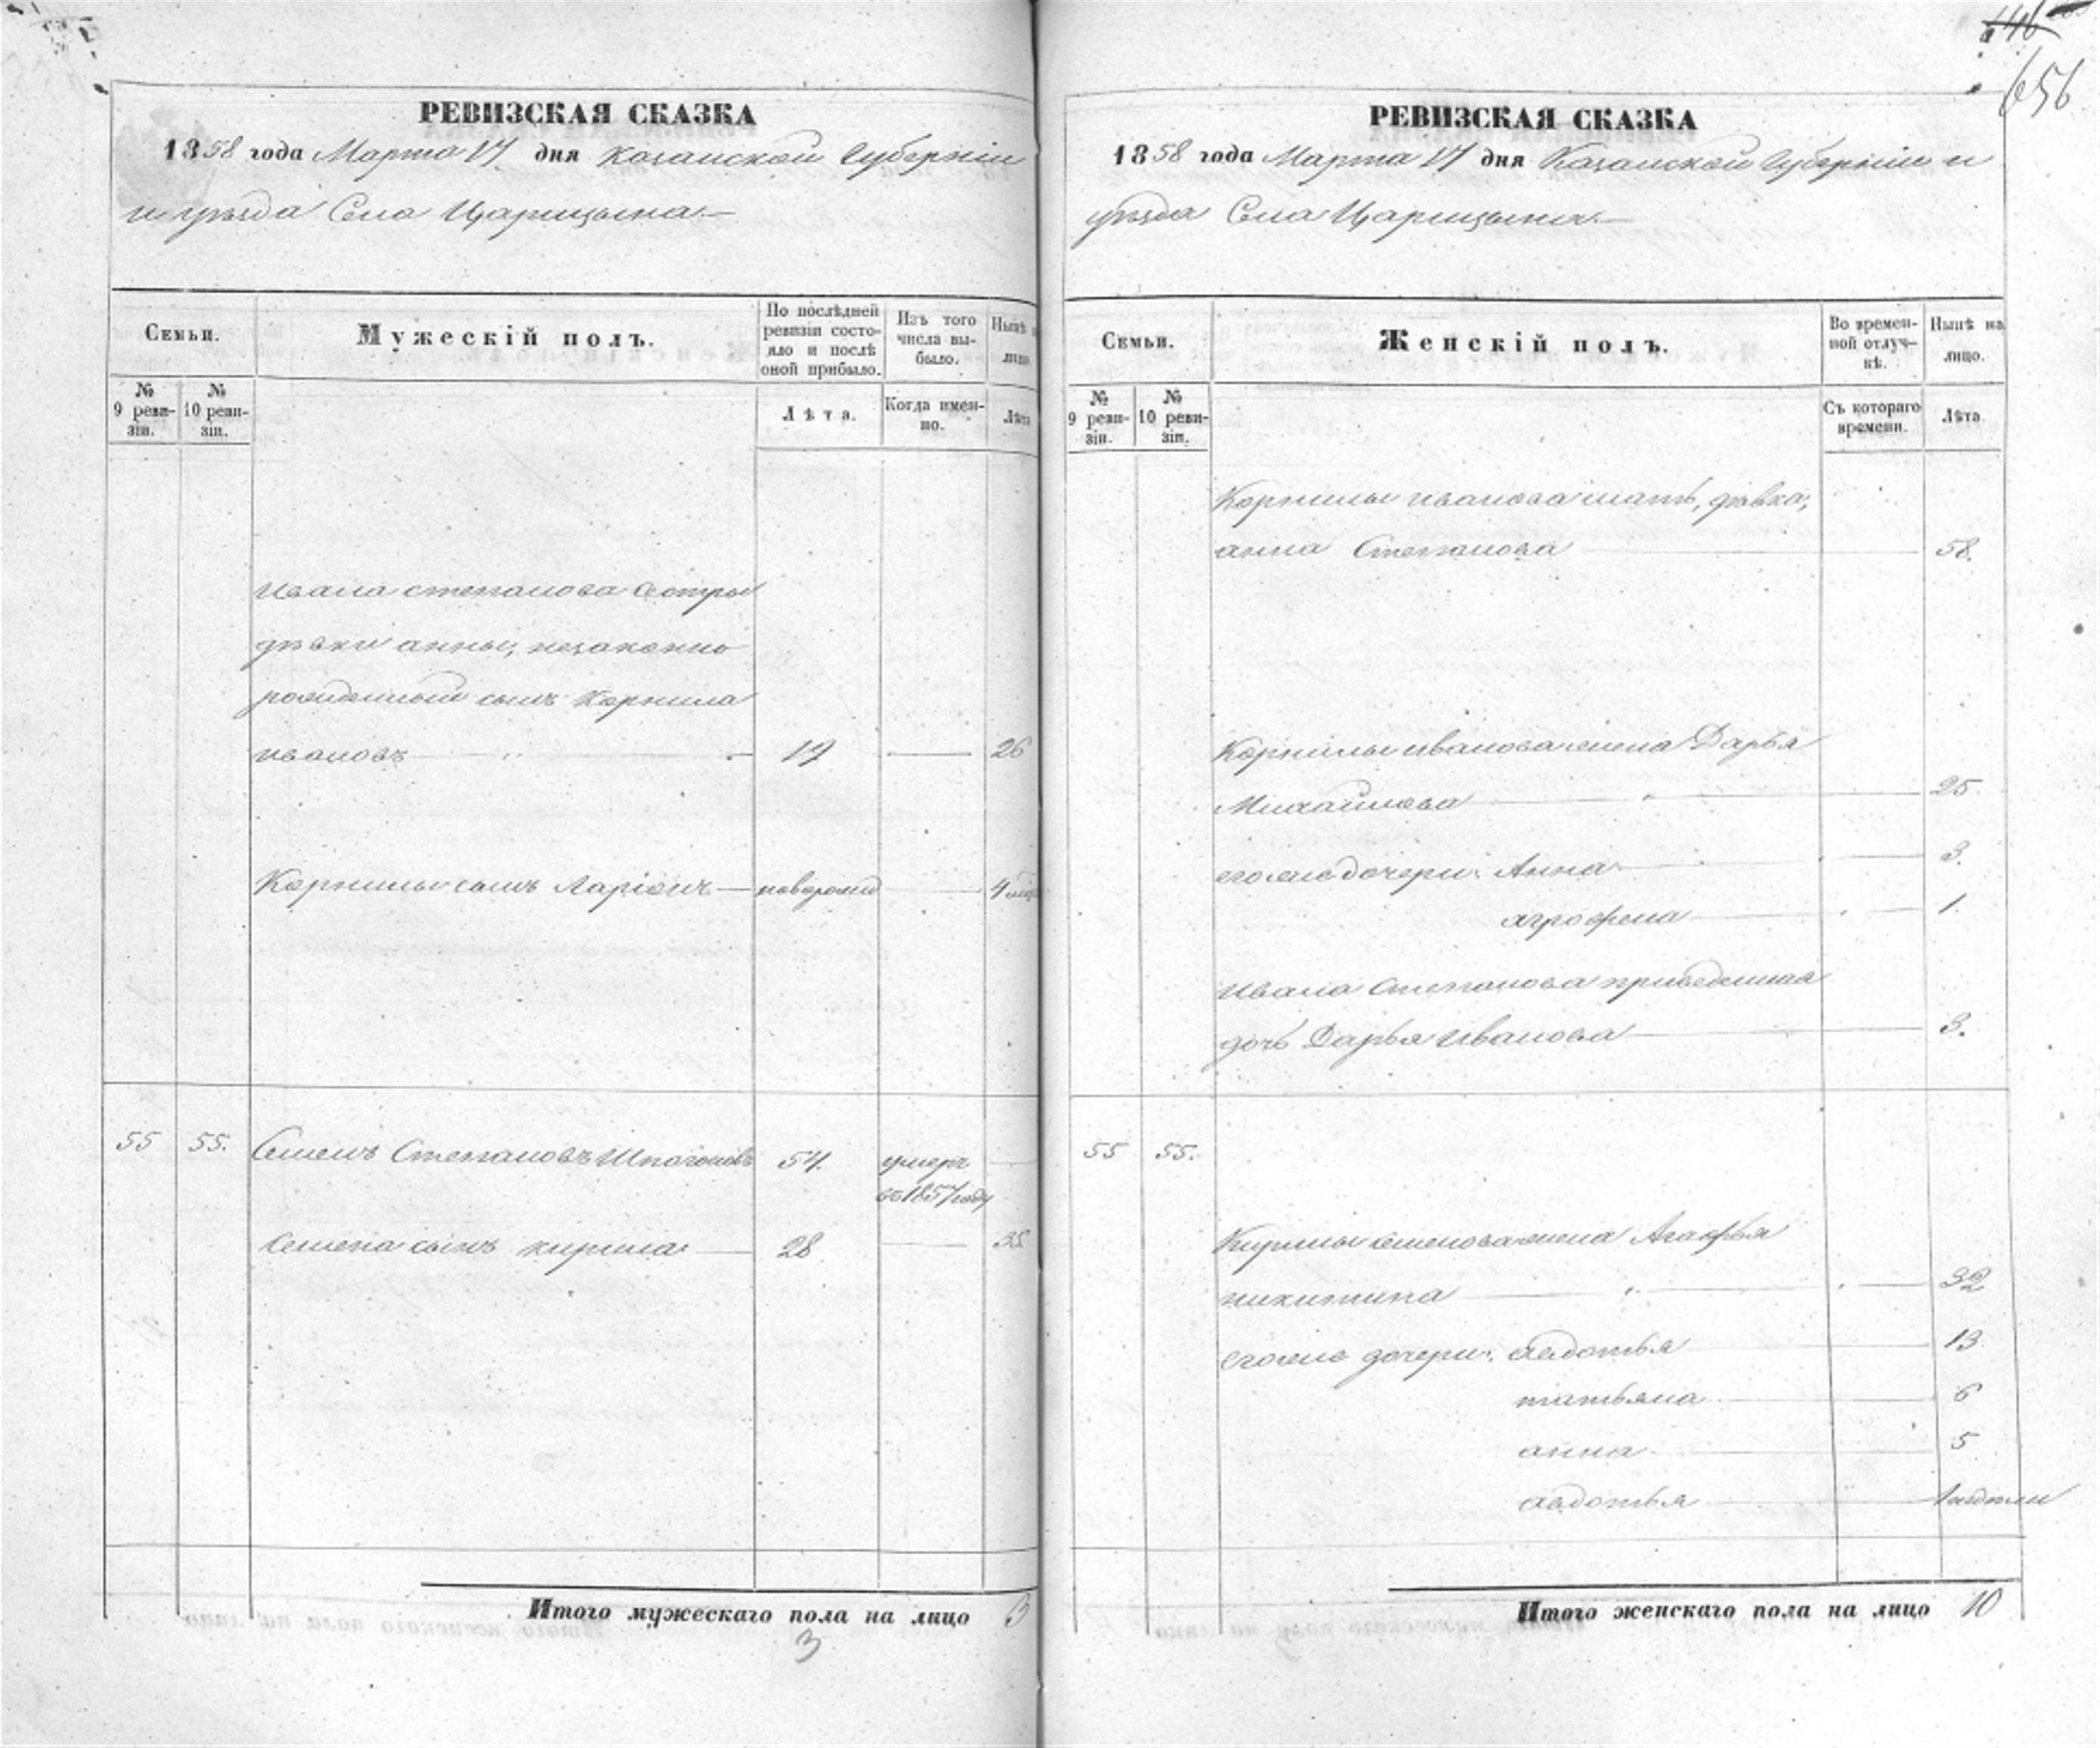 146
656
РЕВИЗСКАЯ СКАЗКА
1858 года Марта 17 дня Казанской Губерніи
и уѣзда Села Царицына.—
Семьи.
Мужескій полъ.
По послѣдней ревизіи состояло и послѣ оной прибыло.
Изъ того числа выбыло.
Нынѣ на лицо.
№ 9 ревизіи.
№ 10 ревизіи.
Лѣта.
Когда именно.
Лѣта
Ивана степанова сестры
дѣвки анны, незаконно
рожденный сынъ Корнила
ивановъ 19 26
Корнилы сынъ Ларіонъ новорожд 4 мѣс
55 55. Семенъ Степановъ 54. умеръ
въ 1857 году
Семена сынъ кирила 28 35
Итого мужескаго пола на лицо 3
3
РЕВИЗСКАЯ СКАЗКА
1858 года Марта 17 дня Казанской Губерніи и
уѣзда Села Царицына.—
Семьи.
Женскій полъ.
Во временной отлучкѣ.
Нынѣ на лицо.
№ 9 ревизіи.
№ 10 ревизіи.
Съ котораго времени.
Лѣта.
Корнилы иванова мать, дѣвка,
анна Степанова 58.
Корнилы иванова жена Дарья
Михайлова 25
его же дочери: Анна 3.
агрофена 1.
Ивана Степанова приведенная
дочь Дарья Иванова 3.
55 55.
Кирилы семенова жена Агафья
никитина 32
его же дочери: авдотья 13
татьяна 6
анна 5
авдотья 1 недели
Итого женскаго пола на лицо 10